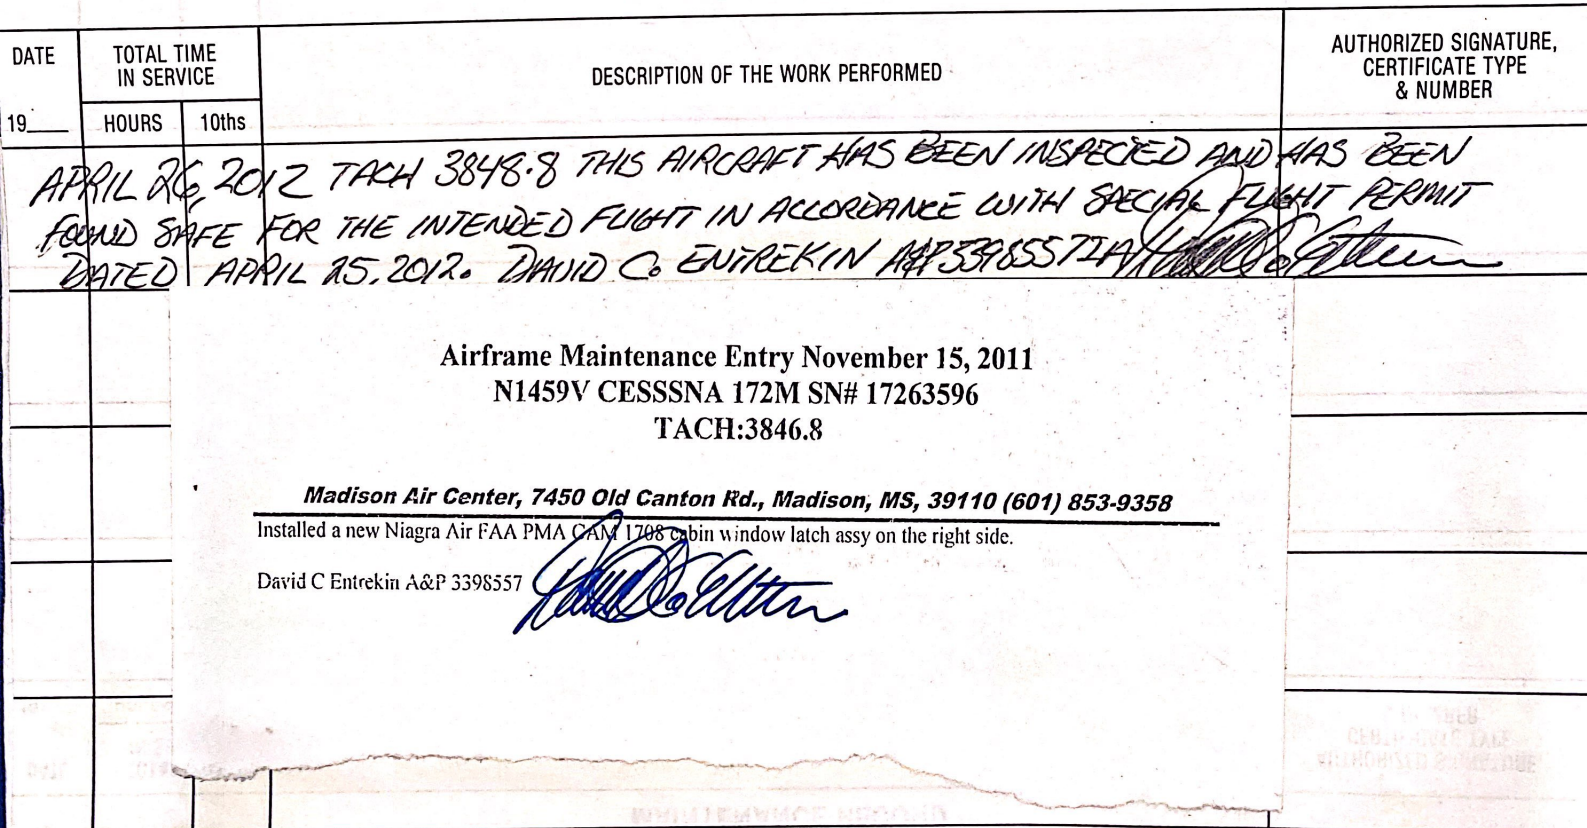 DATE
TOTAL TIME
IN SERVICE
DESCRIPTION OF THE WORK PERFORMED
AUTHORIZED SIGNATURE,
CERTIFICATE TYPE
& NUMBER
19___
HOURS
10ths
APRIL 26, 2012 TACH 3848.8 THIS AIRCRAFT HAS BEEN INSPECTED AND HAS BEEN
FOUND SAFE FOR THE INTENDED FLIGHT IN ACCORDANCE WITH SPECIAL FLIGHT PERMIT
DATED APRIL 25, 2012. DAVID C. ENTREKIN A&P 3398557IA
Airframe Maintenance Entry November 15, 2011
N1459V CESSSNA 172M SN# 17263596
TACH:3846.8
Madison Air Center, 7450 Old Canton Rd., Madison, MS, 39110 (601) 853-9358
Installed a new Niagra Air FAA PMA CAM 1708 cabin window latch assy on the right side.
David C Entrekin A&P 3398557